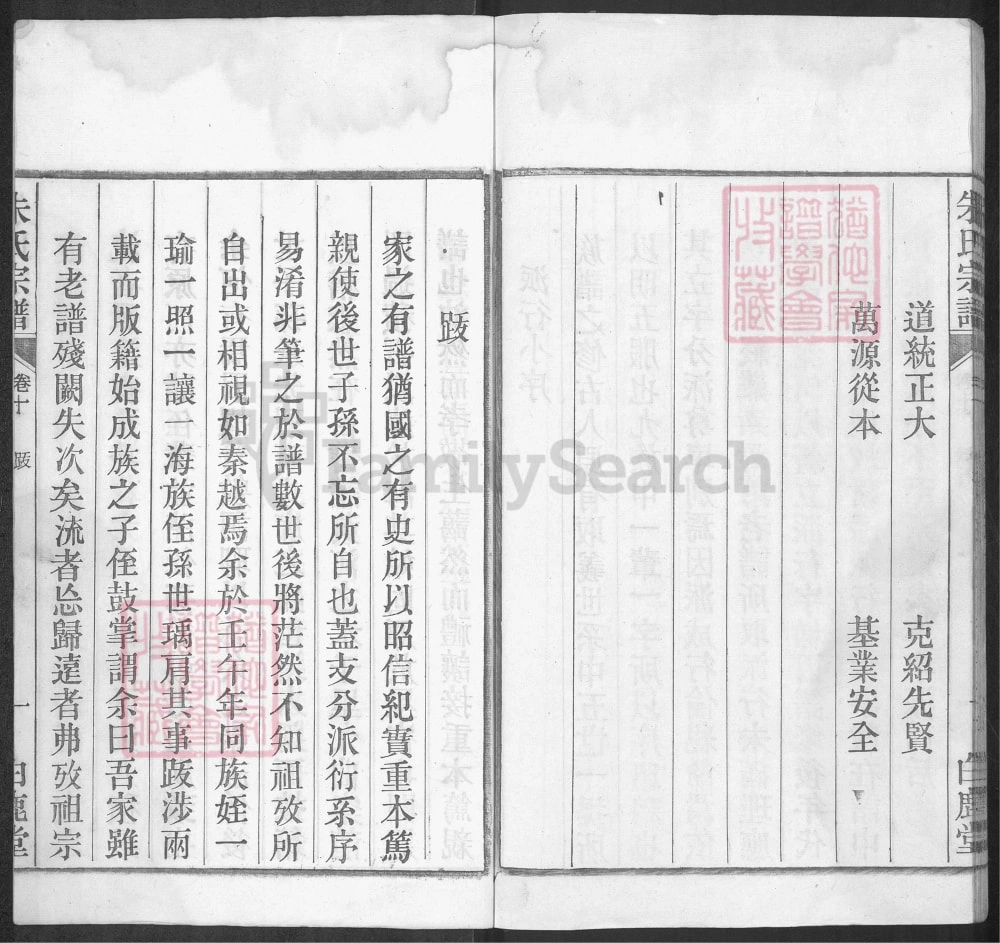 朱氏宗譜
白鹿堂
道統正大 克紹先賢
萬源從本 基業安全
跋
家之有譜猶國之有史所以昭信紀實重本篤
親使後世子孫不忘所自也蓋支分派衍系序
易淆非筆之於譜數世後將茫然不知祖攷所
自出或相視如秦越焉余於壬午年同族姪一
瑜一照一讓一海族侄孫世瑀肩其事䟦涉兩
載而版籍始成族之子侄鼓掌謂余曰吾家雖
有老譜殘闕失次矣流者忘歸遠者弗攷祖宗
朱氏宗譜
卷十
跋
一
白鹿堂
FamilySearch